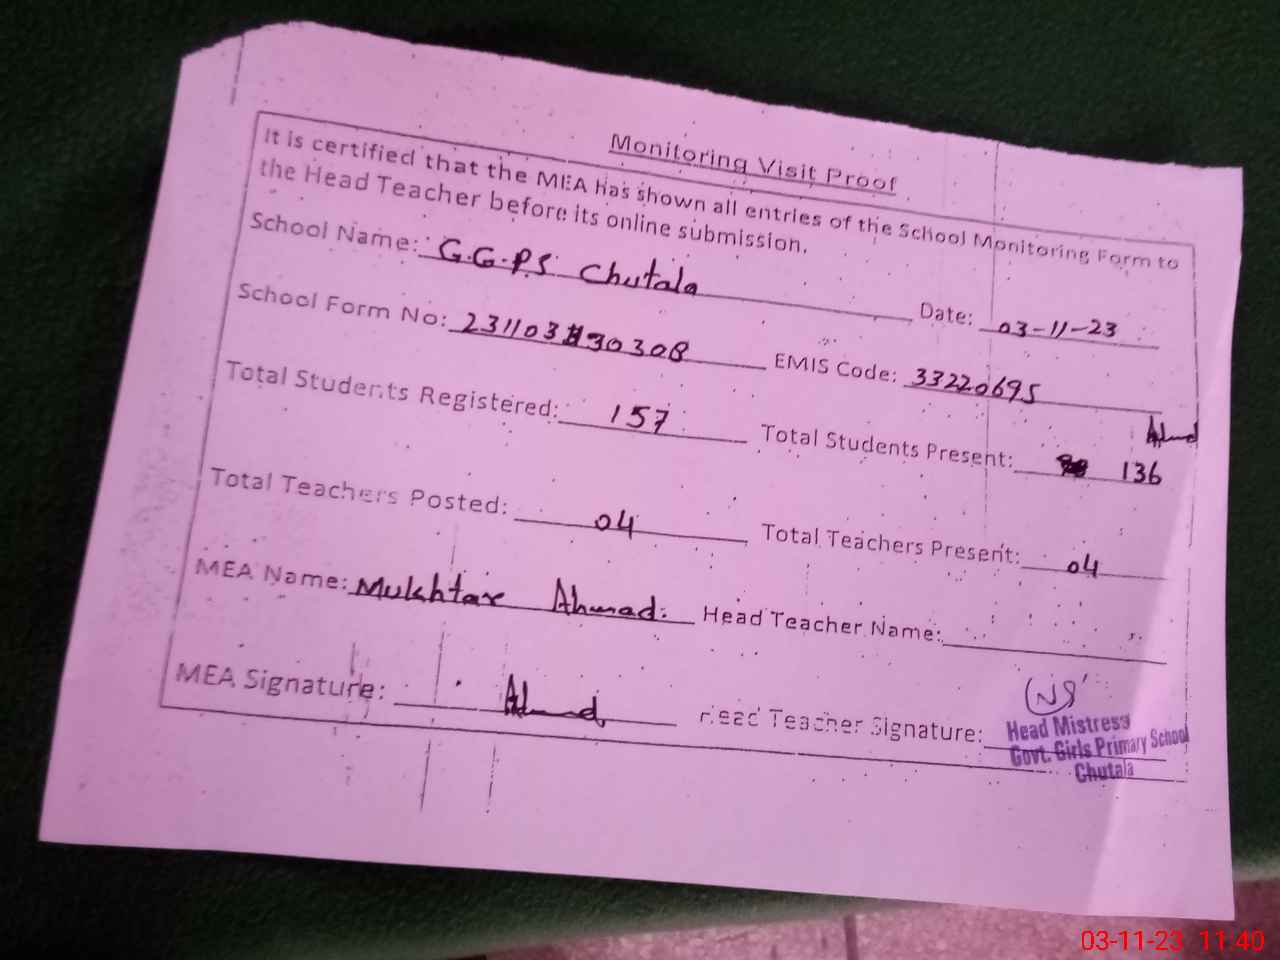 Monitoring Visit Proof
It is certified that the MEA has shown all entries of the School Monitoring Form to
the Head Teacher before its online submission.
School Name: G.G.P.S Chutala Date: 03-11-23
School Form No: 231103 30308 EMIS Code: 33220695
Total Students Registered: 157 Total Students Present: 136
Ahmad
Total Teachers Posted: 04 Total Teachers Present: 04
MEA Name: Mukhtar Ahmad. Head Teacher Name:
MEA Signature: Ahmad Head Teacher Signature:
Head Mistress
Govt. Girls Primary School
Chutala
03-11-23 11:40